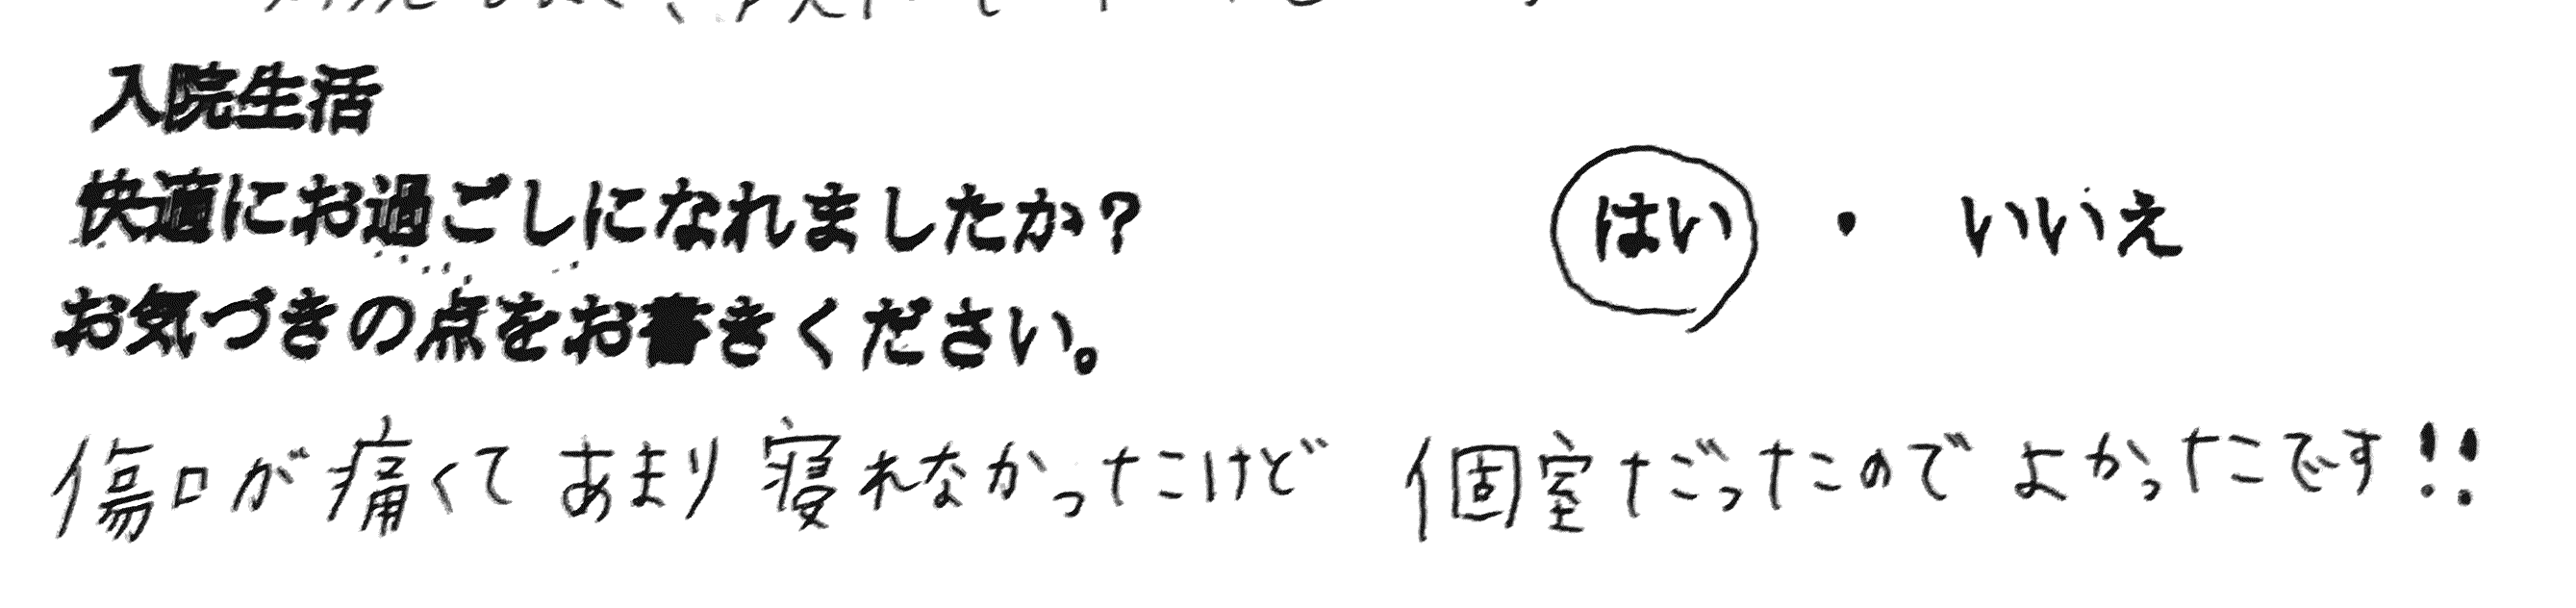 入院生活
快適にお過ごしになれましたか? はい ・ いいえ
お気づきの点をお書きください。
傷口が痛くて あまり 寝れなかったけど 個室だったので よかったです!!